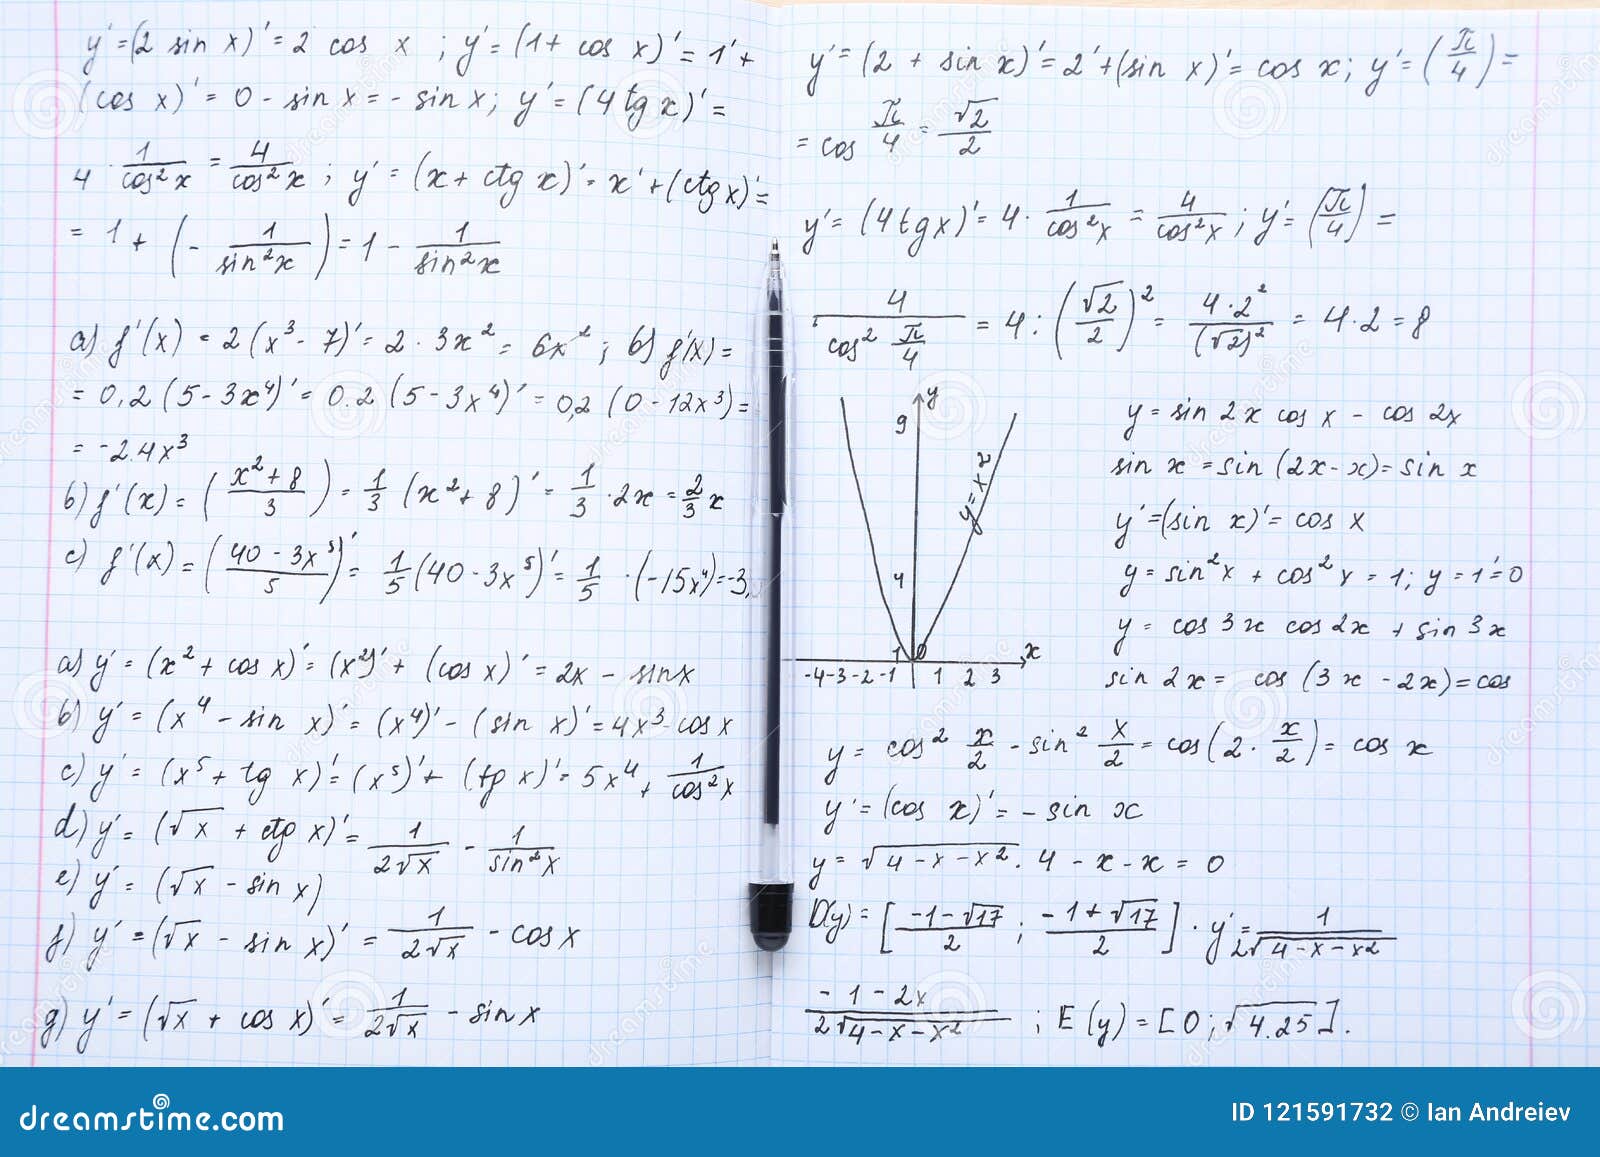 y'=(2 sin x)'=2 cos x ; y'=(1+ cos x)'= 1'+
(cos x)'= 0 - sin x = - sin x; y'=(4tg x)'=
4 · 1/cos²x = 4/cos²x ; y' = (x+ctg x)'= x'+(ctg x)'=
= 1+ (- 1/sin²x) = 1 - 1/sin²x
a) f'(x) = 2(x³-7)'= 2·3x² = 6x²; b) f'(x) =
= 0,2(5-3x⁴)'= 0.2(5-3x⁴)'= 0,2(0-12x³)=
= -2.4x³
b) f'(x) = (x²+8/3) = 1/3 (x²+8)' = 1/3 · 2x = 2/3 x
c) f'(x) = (40-3x⁵/5)' = 1/5 (40-3x⁵)' = 1/5 · (-15x⁴)=-3
a) y' = (x² + cos x)'= (x²)'+ (cos x)' = 2x - sin x
b) y' = (x⁴ - sin x)'= (x⁴)' - (sin x)'= 4x³-cos x
c) y' = (x⁵ + tg x)'= (x⁵)'+ (tg x)'= 5x⁴ + 1/cos²x
d) y'= (√x + ctg x)'= 1/2√x - 1/sin²x
e) y' = (√x - sin x)
f) y' = (√x - sin x)' = 1/2√x - cos x
g) y' = (√x + cos x)'= 1/2√x - sin x
y'= (2 + sin x)'= 2'+(sin x)'= cos x; y'= (π/4) =
= cos π/4 = √2/2
y'= (4tg x)'= 4· 1/cos²x = 4/cos²x ; y'= (π/4) =
4/cos² π/4 = 4:(√2/2)² = 4·2²/(√2)² = 4·2 = 8
y
9
y=x²
4
1 0 x
-4-3-2-1 1 2 3
y= sin 2x cos x - cos 2x
sin x = sin (2x-x)= sin x
y'=(sin x)'= cos x
y= sin²x + cos²x = 1; y = 1'=0
y= cos 3x cos 2x + sin 3x
sin 2x = cos (3x - 2x)= cos
y= cos² x/2 - sin² x/2 = cos(2· x/2) = cos x
y'= (cos x)'= - sin x
y= √4-x-x². 4 - x - x = 0
D(y)= [-1-√17/2 ; -1+√17/2] · y'= 1/2√4-x-x²
-1-2x/2√4-x-x² ; E(y)=[0;√4.25].
dreamstime.com
ID 121591732 © Ian Andreiev